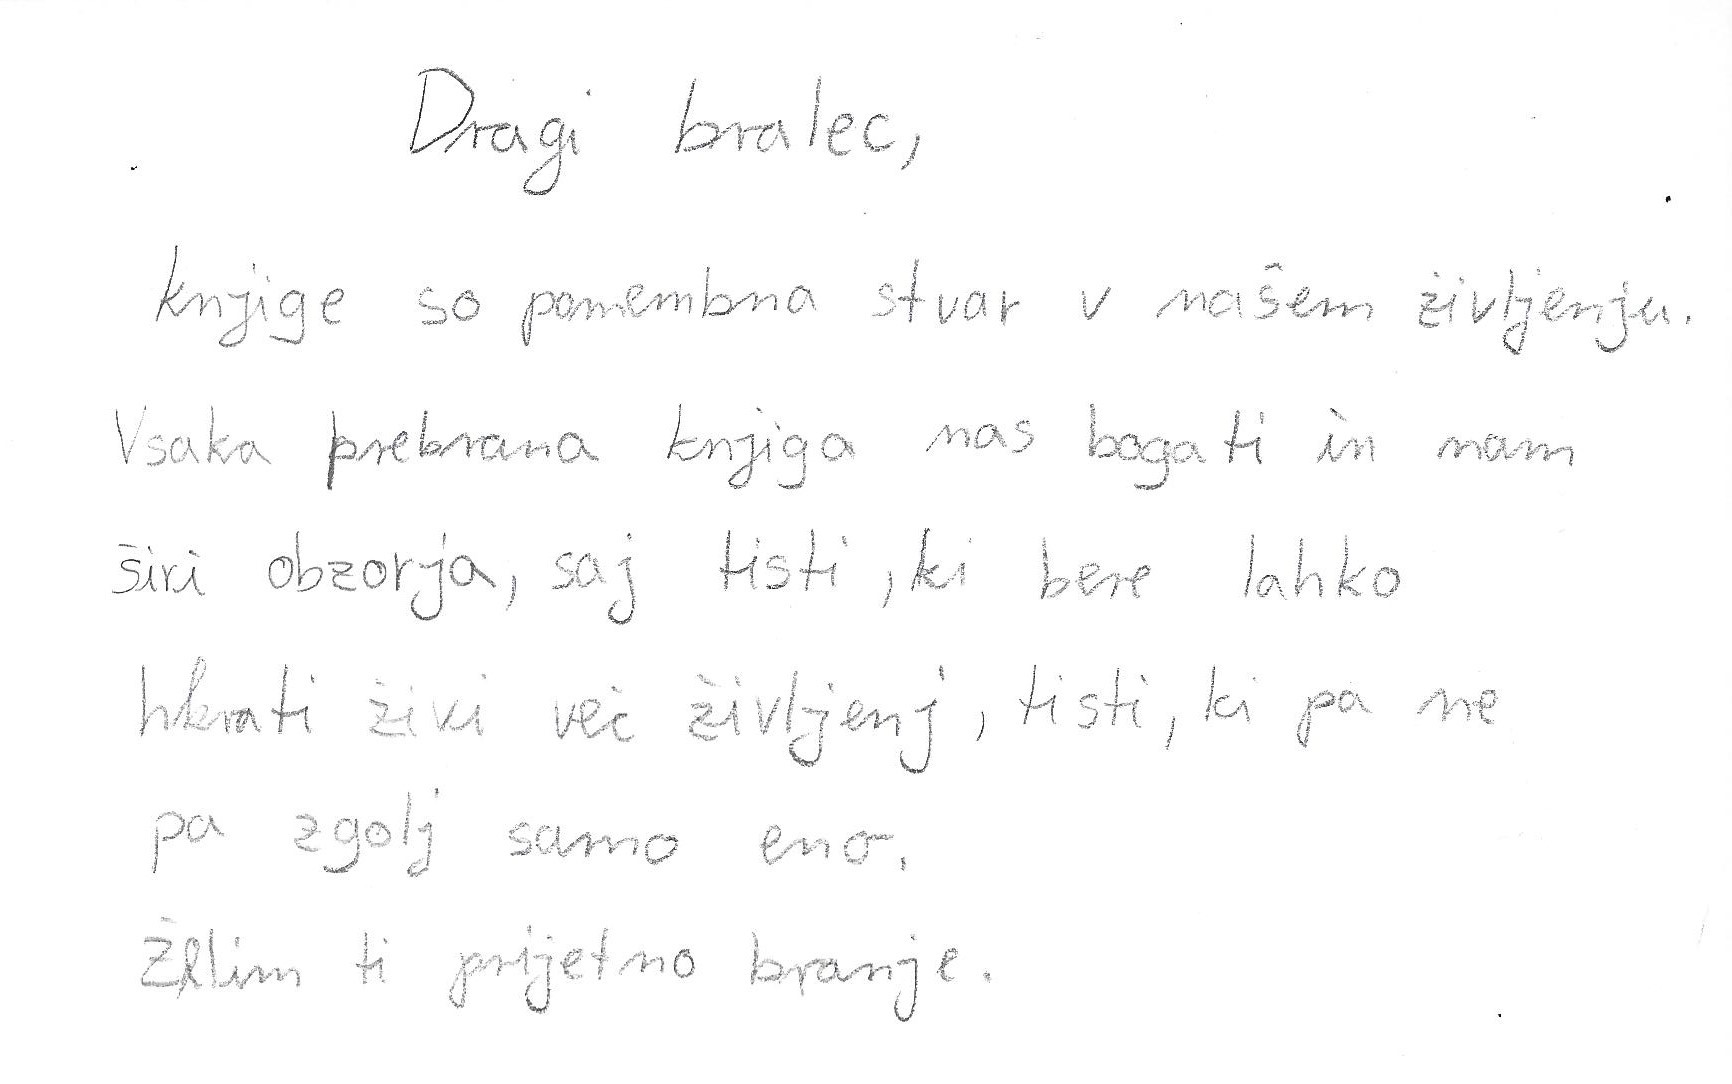 Dragi bralec,
knjige so pomembna stvar v našem življenju.
Vsaka prebrana knjiga nas bogati in nam
širi obzorja, saj tisti, ki bere lahko
hkrati živi več življenj, tisti, ki pa ne
pa zgolj samo eno.
Želim ti prijetno branje.